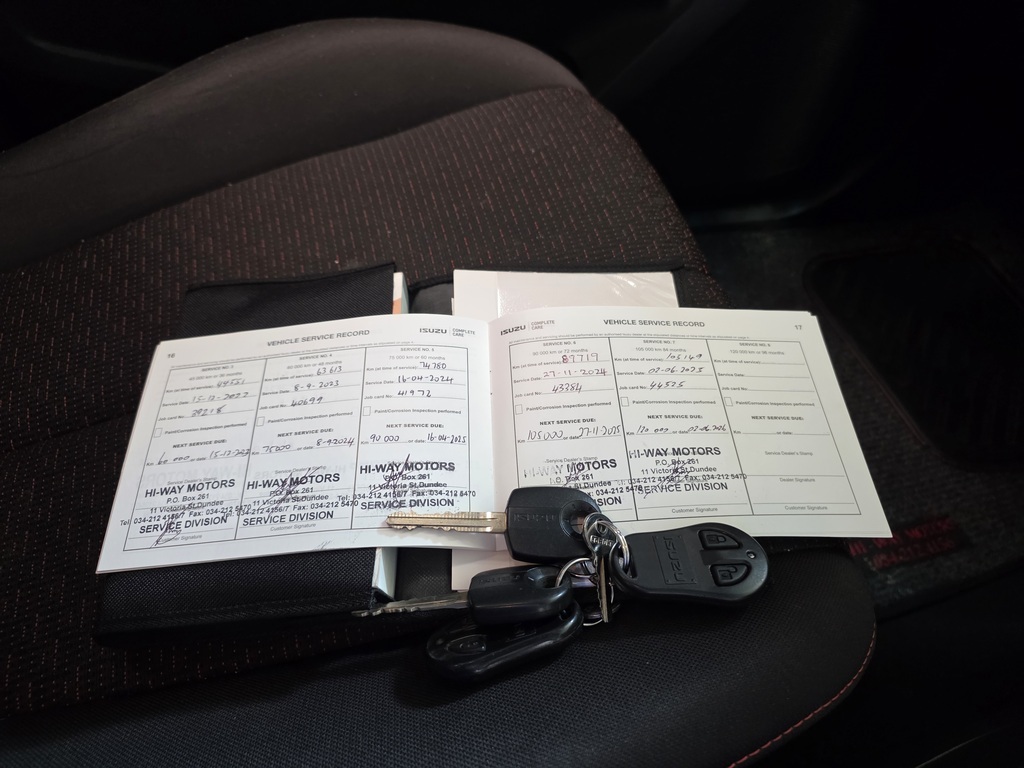 16
VEHICLE SERVICE RECORD
ISUZU COMPLETE CARE
SERVICE NO. 3
45 000 km or 36 months
Km (at time of service):
Service Date: 15-12-2022
Job card No.: 39218
Paint/Corrosion Inspection performed
NEXT SERVICE DUE:
Km 60 000 or date: 15-12-
Service Dealer's Stamp
HI-WAY MOTORS
P.O. Box 261
11 Victoria St, Dundee
Tel: 034-212 4156/7 Fax: 034-212 5470
SERVICE DIVISION
Customer Signature
SERVICE NO. 4
60 000 km or 48 months
Km (at time of service): 63 613
Service Date: 8-9-2023
Job card No.: 40699
Paint/Corrosion Inspection performed
NEXT SERVICE DUE:
Km 75000 or date: 8-9-2024
Service Dealer's Stamp
HI-WAY MOTORS
P.O. Box 261
11 Victoria St, Dundee
Tel: 034-212 4156/7 Fax: 034-212 5470
SERVICE DIVISION
Customer Signature
SERVICE NO. 5
75 000 km or 60 months
Km (at time of service): 74780
Service Date: 16-04-2024
Job card No.: 41972
Paint/Corrosion Inspection performed
NEXT SERVICE DUE:
Km 90 000 or date: 16-04-2025
HI-WAY MOTORS
P.O. Box 261
11 Victoria St, Dundee
Tel: 034-212 4156/7 Fax: 034-212 5470
SERVICE DIVISION
ISUZU COMPLETE CARE
VEHICLE SERVICE RECORD
17
SERVICE NO. 6
90 000 km or 72 months
Km (at time of service): 87719
Service Date: 27-11-2024
Job card No.: 43384
Paint/Corrosion Inspection performed
NEXT SERVICE DUE:
Km 105000 or date: 27-11-2025
Service Dealer's Stamp
HI-WAY MOTORS
P.O. Box 261
11 Victoria St, Dundee
SERVICE NO. 7
Km (at time of service): 105149
Service Date: 02-06-2025
Job card No.: 44525
Paint/Corrosion Inspection performed
NEXT SERVICE DUE:
Km 120 000 or date: 02-06-2026
HI-WAY MOTORS
P.O. Box 261
11 Victoria St, Dundee
Tel: 034-212 4156/7 Fax: 034-212 5470
SERVICE DIVISION
Customer Signature
SERVICE NO. 8
120 000 km or 96 months
Km (at time of service):
Service Date:
Job card No.:
Paint/Corrosion Inspection performed
NEXT SERVICE DUE:
Km or date:
Service Dealer's Stamp
Dealer Signature
Customer Signature
ISUZU
ISUZU